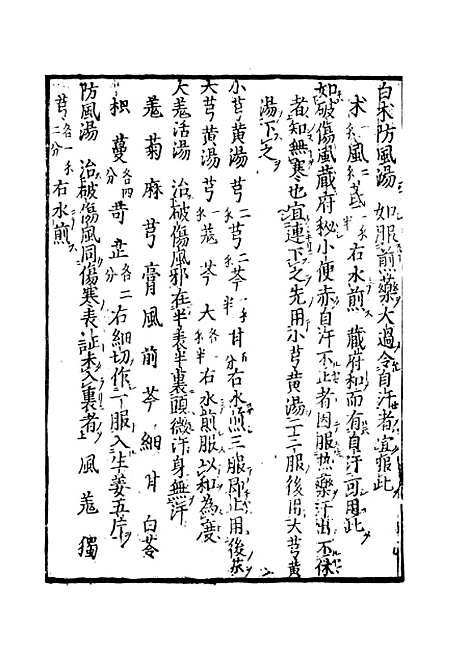 白朮防風湯 如服前藥大過令自汗者宜服此
朮一匁風二匁芪一匁右水煎 蔵府和而有自汗可用此
如破傷風蔵府秘小便赤自汗不止者因服热藥汗出不休
者知無寒也宜連下之先用小芎黄湯二三服後用大芎黄
湯下之
小芎黄湯 芎二匁芩一匁半甘五分右水煎三服即止用後藥
大芎黄湯 芎一匁羗芩大各一匁右水煎服以和為度
大羗活湯 治破傷風邪在半表半裏頭微汗身無汗
羗菊麻芎膏風前芩細甘白苓
枳蔓各四分苛芷各二分右細切作二服入生姜五片
防風湯 治破傷風同傷寒表証未入裏者 風羗獨
芎各一匁二分右水煎